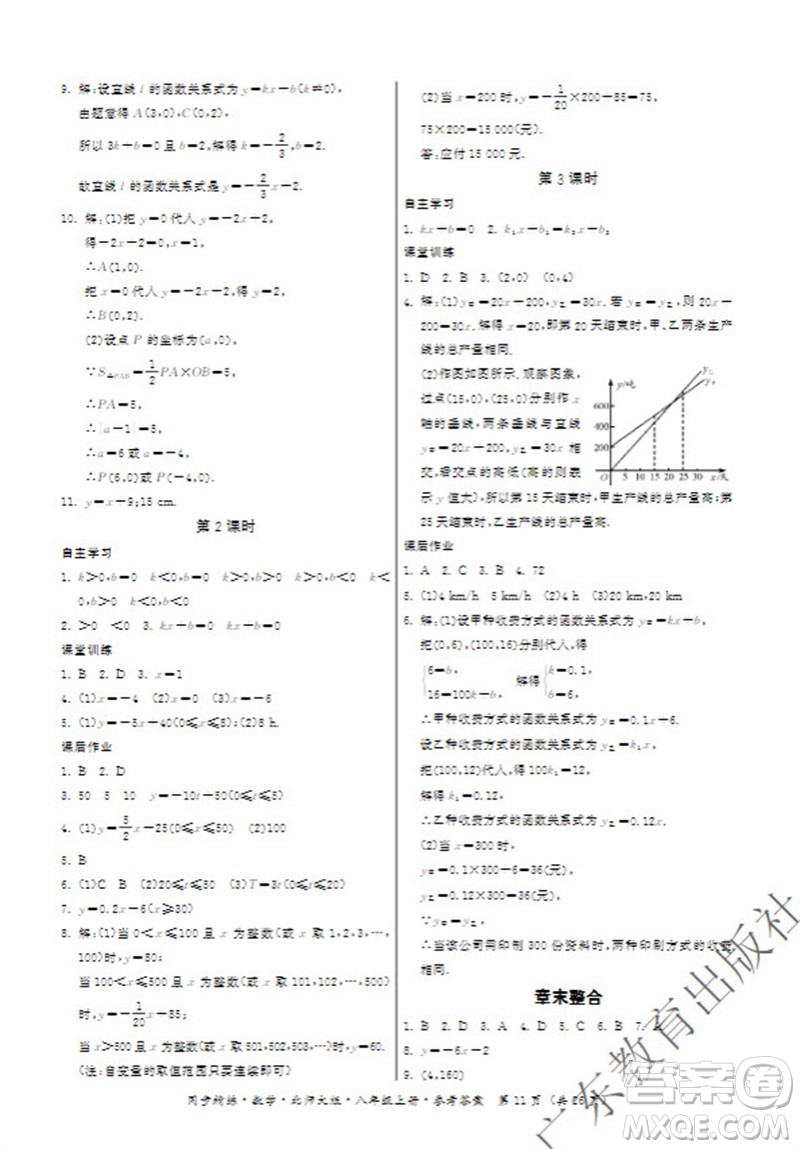 9. 解:设直线 l 的函数关系式为 y=kx−b(k≠0),
由题意得 A(3,0),C(0,2),
所以 3k−b=0 且 b=2,解得 k=−2/3,b=2.
故直线 l 的函数关系式是 y=−2/3x−2.
10. 解:(1)把 y=0 代入 y=−2x−2,
得−2x−2=0,x=1,
∴A(1,0).
把 x=0 代入 y=−2x−2,得 y=2,
∴B(0,2).
(2)设点 P 的坐标为(a,0),
∵S△PAB=1/2PA×OB=5,
∴PA=5,
∴|a−1|=5,
∴a=6或 a=−4,
∴P(6,0)或 P(−4,0).
11. y=x+9;15 cm.
第 2 课时
自主学习
1. k>0,b=0 k<0,b=0 k>0,b>0 k>0,b<0 k<
0,b>0 k<0,b<0
2. >0 <0 3. kx−b=0 kx−b=0
课堂训练
1. B 2. D 3. x=1
4. (1)x=−4 (2)x=0 (3)x=−6
5. (1)y=−5x−40(0≤x≤8);(2)8 h.
课后作业
1. B 2. D
3. 50 5 10 y=−10t−50(0≤t≤5)
4. (1)y=5/2x−25(0≤x≤50) (2)100
5. B
6. (1)C B (2)20≤t≤50 (3)T=3t(0≤t≤20)
7. y=0.2x−6(x≥30)
8. 解:(1)当 0<x≤100 且 x 为整数(或 x 取 1,2,3,…,
100)时,y=50;
当 100<x≤500 且 x 为整数(或 x 取 101,102,…,500)
时,y=−1/20x−85;
当 x>500 且 x 为整数(或 x 取 501,502,503,…)时,y=60.
(注:自变量的取值范围只要连续即可)
(2)当 x=200 时,y=−1/20×200−85=75,
75×200=15 000(元).
答:应付 15 000 元.
第 3 课时
自主学习
1. kx−b=0 2. k₁x−b₁=k₂x−b₂
课堂训练
1. D 2. B 3. (2,0) (0,4)
4. 解:(1)y甲=20x−200,y乙=30x. 若 y甲=y乙,则 20x−
200=30x. 解得 x=20,即第 20 天结束时,甲、乙两条生产
线的总产量相同.
(2)作图如图所示. 观察图象,
过点(15,0),(25,0)分别作 x
轴的垂线,两条垂线与直线
y甲=20x−200,y乙=30x 相
交,看交点的高低(高的则表
示 y 值大),所以第 15 天结束时,甲生产线的总产量高;第
25 天结束时,乙生产线的总产量高.
y/吨
y乙
y甲
600
400
200
0 5 10 15 20 25 30 x/天
课后作业
1. A 2. C 3. B 4. 72
5. (1)4 km/h 5 km/h (2)4 h (3)20 km,20 km
6. 解:(1)设甲种收费方式的函数关系式为 y甲=kx−b,
把(0,6),(100,16)分别代入,得
6=b,
16=100k−b, 解得 k=0.1,
b=6,
∴甲种收费方式的函数关系式为 y甲=0.1x−6.
设乙种收费方式的函数关系式为 y乙=k₁x,
把(100,12)代入,得 100k₁=12,
解得 k₁=0.12,
∴乙种收费方式的函数关系式为 y乙=0.12x.
(2)当 x=300 时,
y甲=0.1×300−6=36(元),
y乙=0.12×300=36(元),
∵y甲=y乙,
∴当该公司需印制 300 份资料时,两种印刷方式的收费
相同.
章末整合
1. B 2. D 3. B 4. A 5. B 6. B 7.
8. y=−6x−2
9. (4,160)
同步精练·数学·北师大版·八年级上册·参考答案 第 11 页 (共 26 页)
广东教育出版社
答案圈